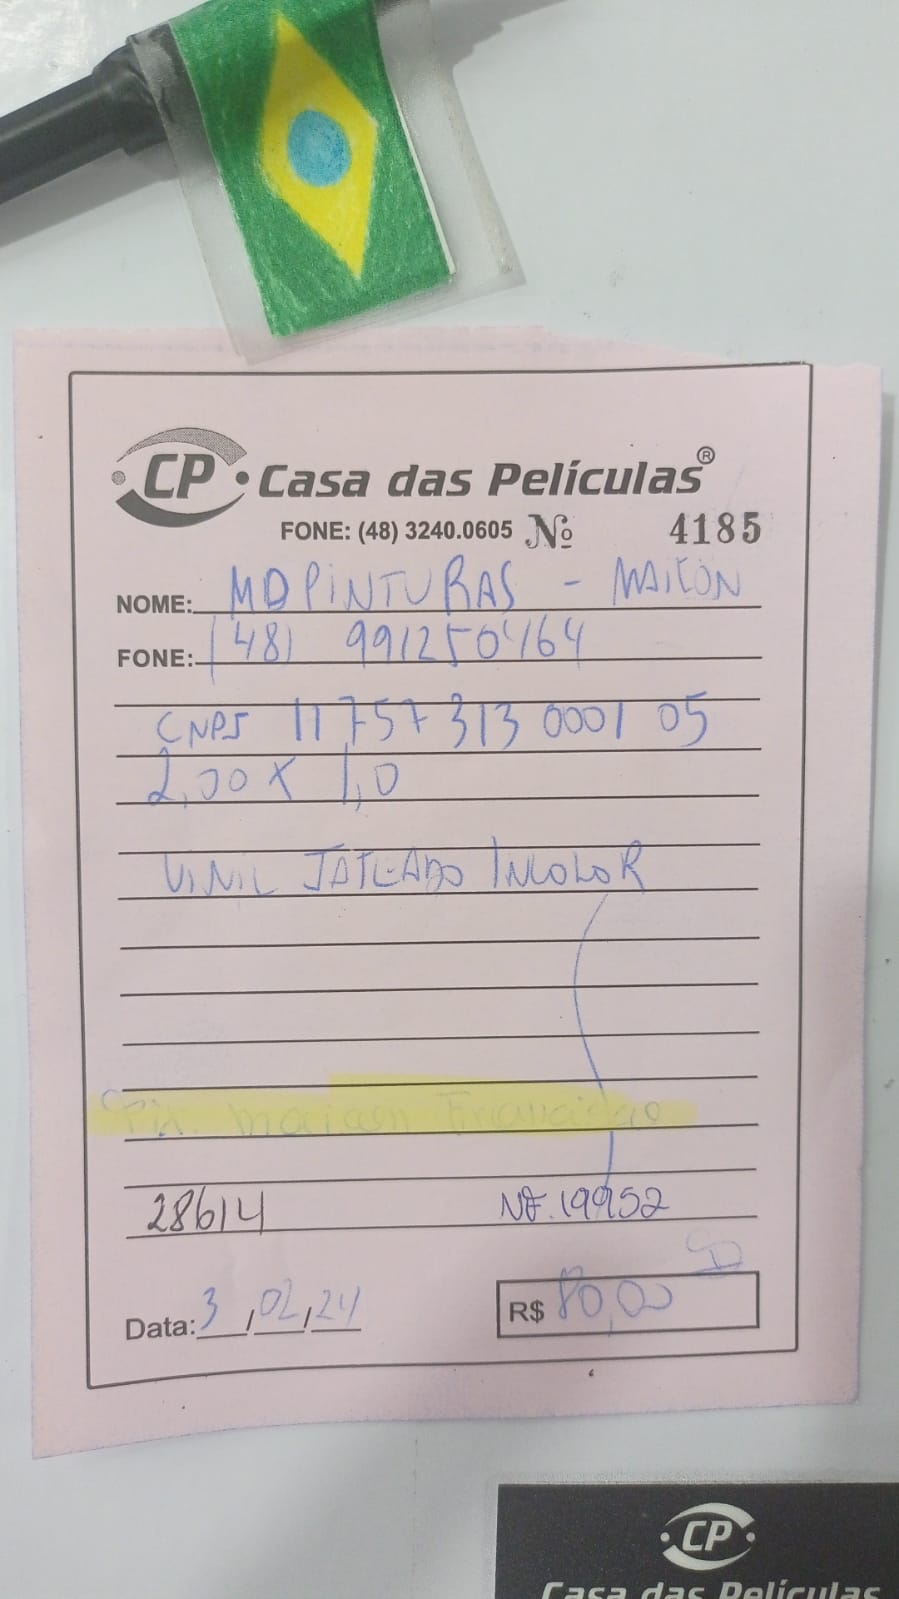 CP Casa das Películas®
FONE: (48) 3240.0605 Nº 4185
NOME: MD PINTURAS - MAICON
FONE: (48) 991250464
CNPJ 11 757 313 0001 05
2,00 x 1,0
VINIL JATEADO INCOLOR
Pix. Maicon
28614 NF. 19952
Data: 3/02/24 R$ 80,00
CP
Casa das Películas